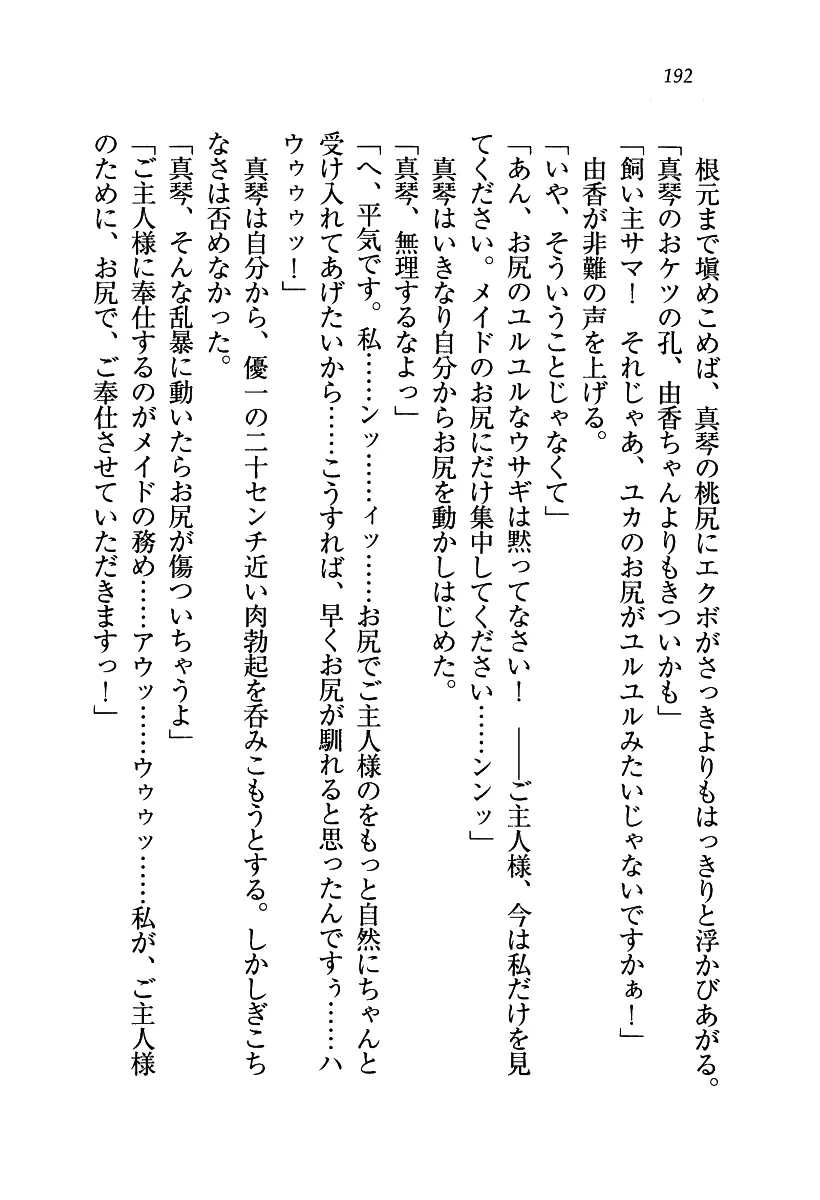 192
根元まで塡めこめば、真琴の桃尻にエクボがさっきよりもはっきりと浮かびあがる。
「真琴のおケツの孔、由香ちゃんよりもきついかも」
「飼い主サマ！　それじゃあ、ユカのお尻がユルユルみたいじゃないですかぁ！」
由香が非難の声を上げる。
「いや、そういうことじゃなくて」
「あん、お尻のユルユルなウサギは黙ってなさい！　――ご主人様、今は私だけを見
てください。メイドのお尻にだけ集中してください……ンンッ」
真琴はいきなり自分からお尻を動かしはじめた。
「真琴、無理するなよっ」
「へ、平気です。私……ンッ……ィッ……お尻でご主人様のをもっと自然にちゃんと
受け入れてあげたいから……こうすれば、早くお尻が馴れると思ったんですぅ……ハ
ウゥゥゥッ！」
真琴は自分から、優一の二十センチ近い肉勃起を呑みこもうとする。しかしぎこち
なさは否めなかった。
「真琴、そんな乱暴に動いたらお尻が傷ついちゃうよ」
「ご主人様に奉仕するのがメイドの務め……アウッ……ウゥゥッ……私が、ご主人様
のために、お尻で、ご奉仕させていただきますっ！」